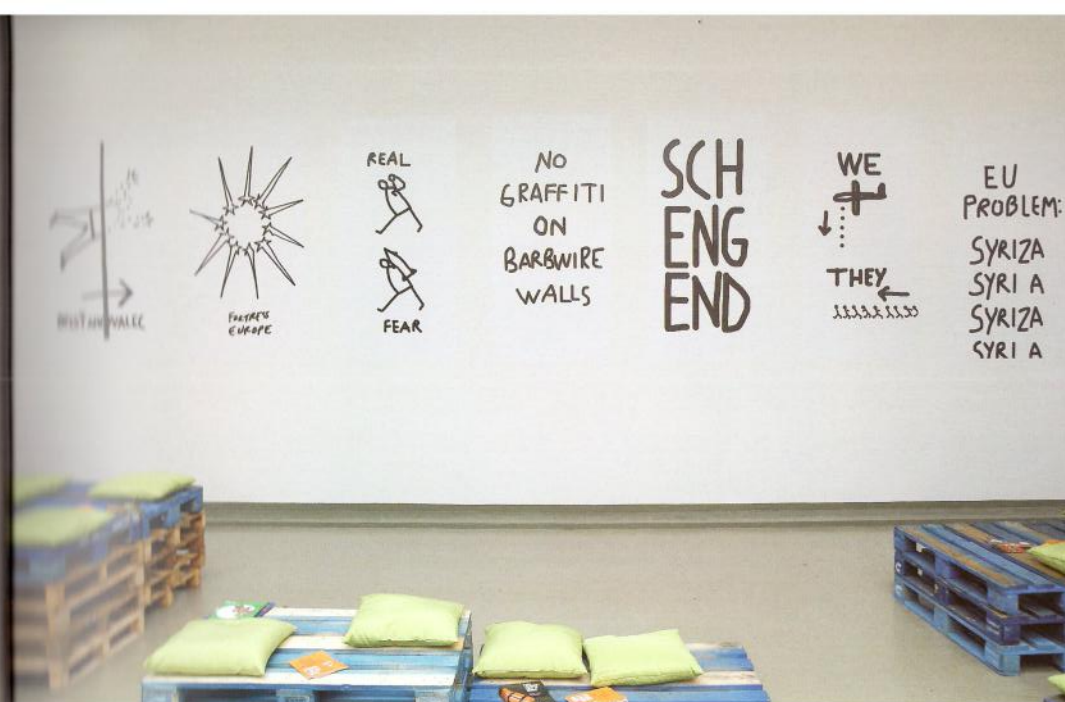 REAL
FEAR
FORTRESS
EUROPE
NO
GRAFFITI
ON
BARBWIRE
WALLS
SCH
ENG
END
WE
THEY
EU
PROBLEM:
SYRIZA
SYRI A
SYRIZA
SYRI A